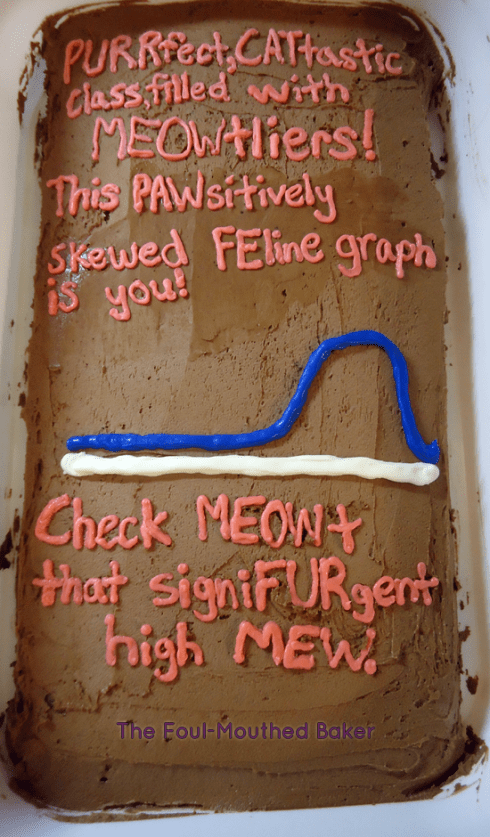 PURRfect, CATtastic
class, filled with
MEOWtliers!
This PAWsitively
skewed FEline graph
is you!
Check MEOWt
that signiFURgent
high MEW.
The Foul-Mouthed Baker